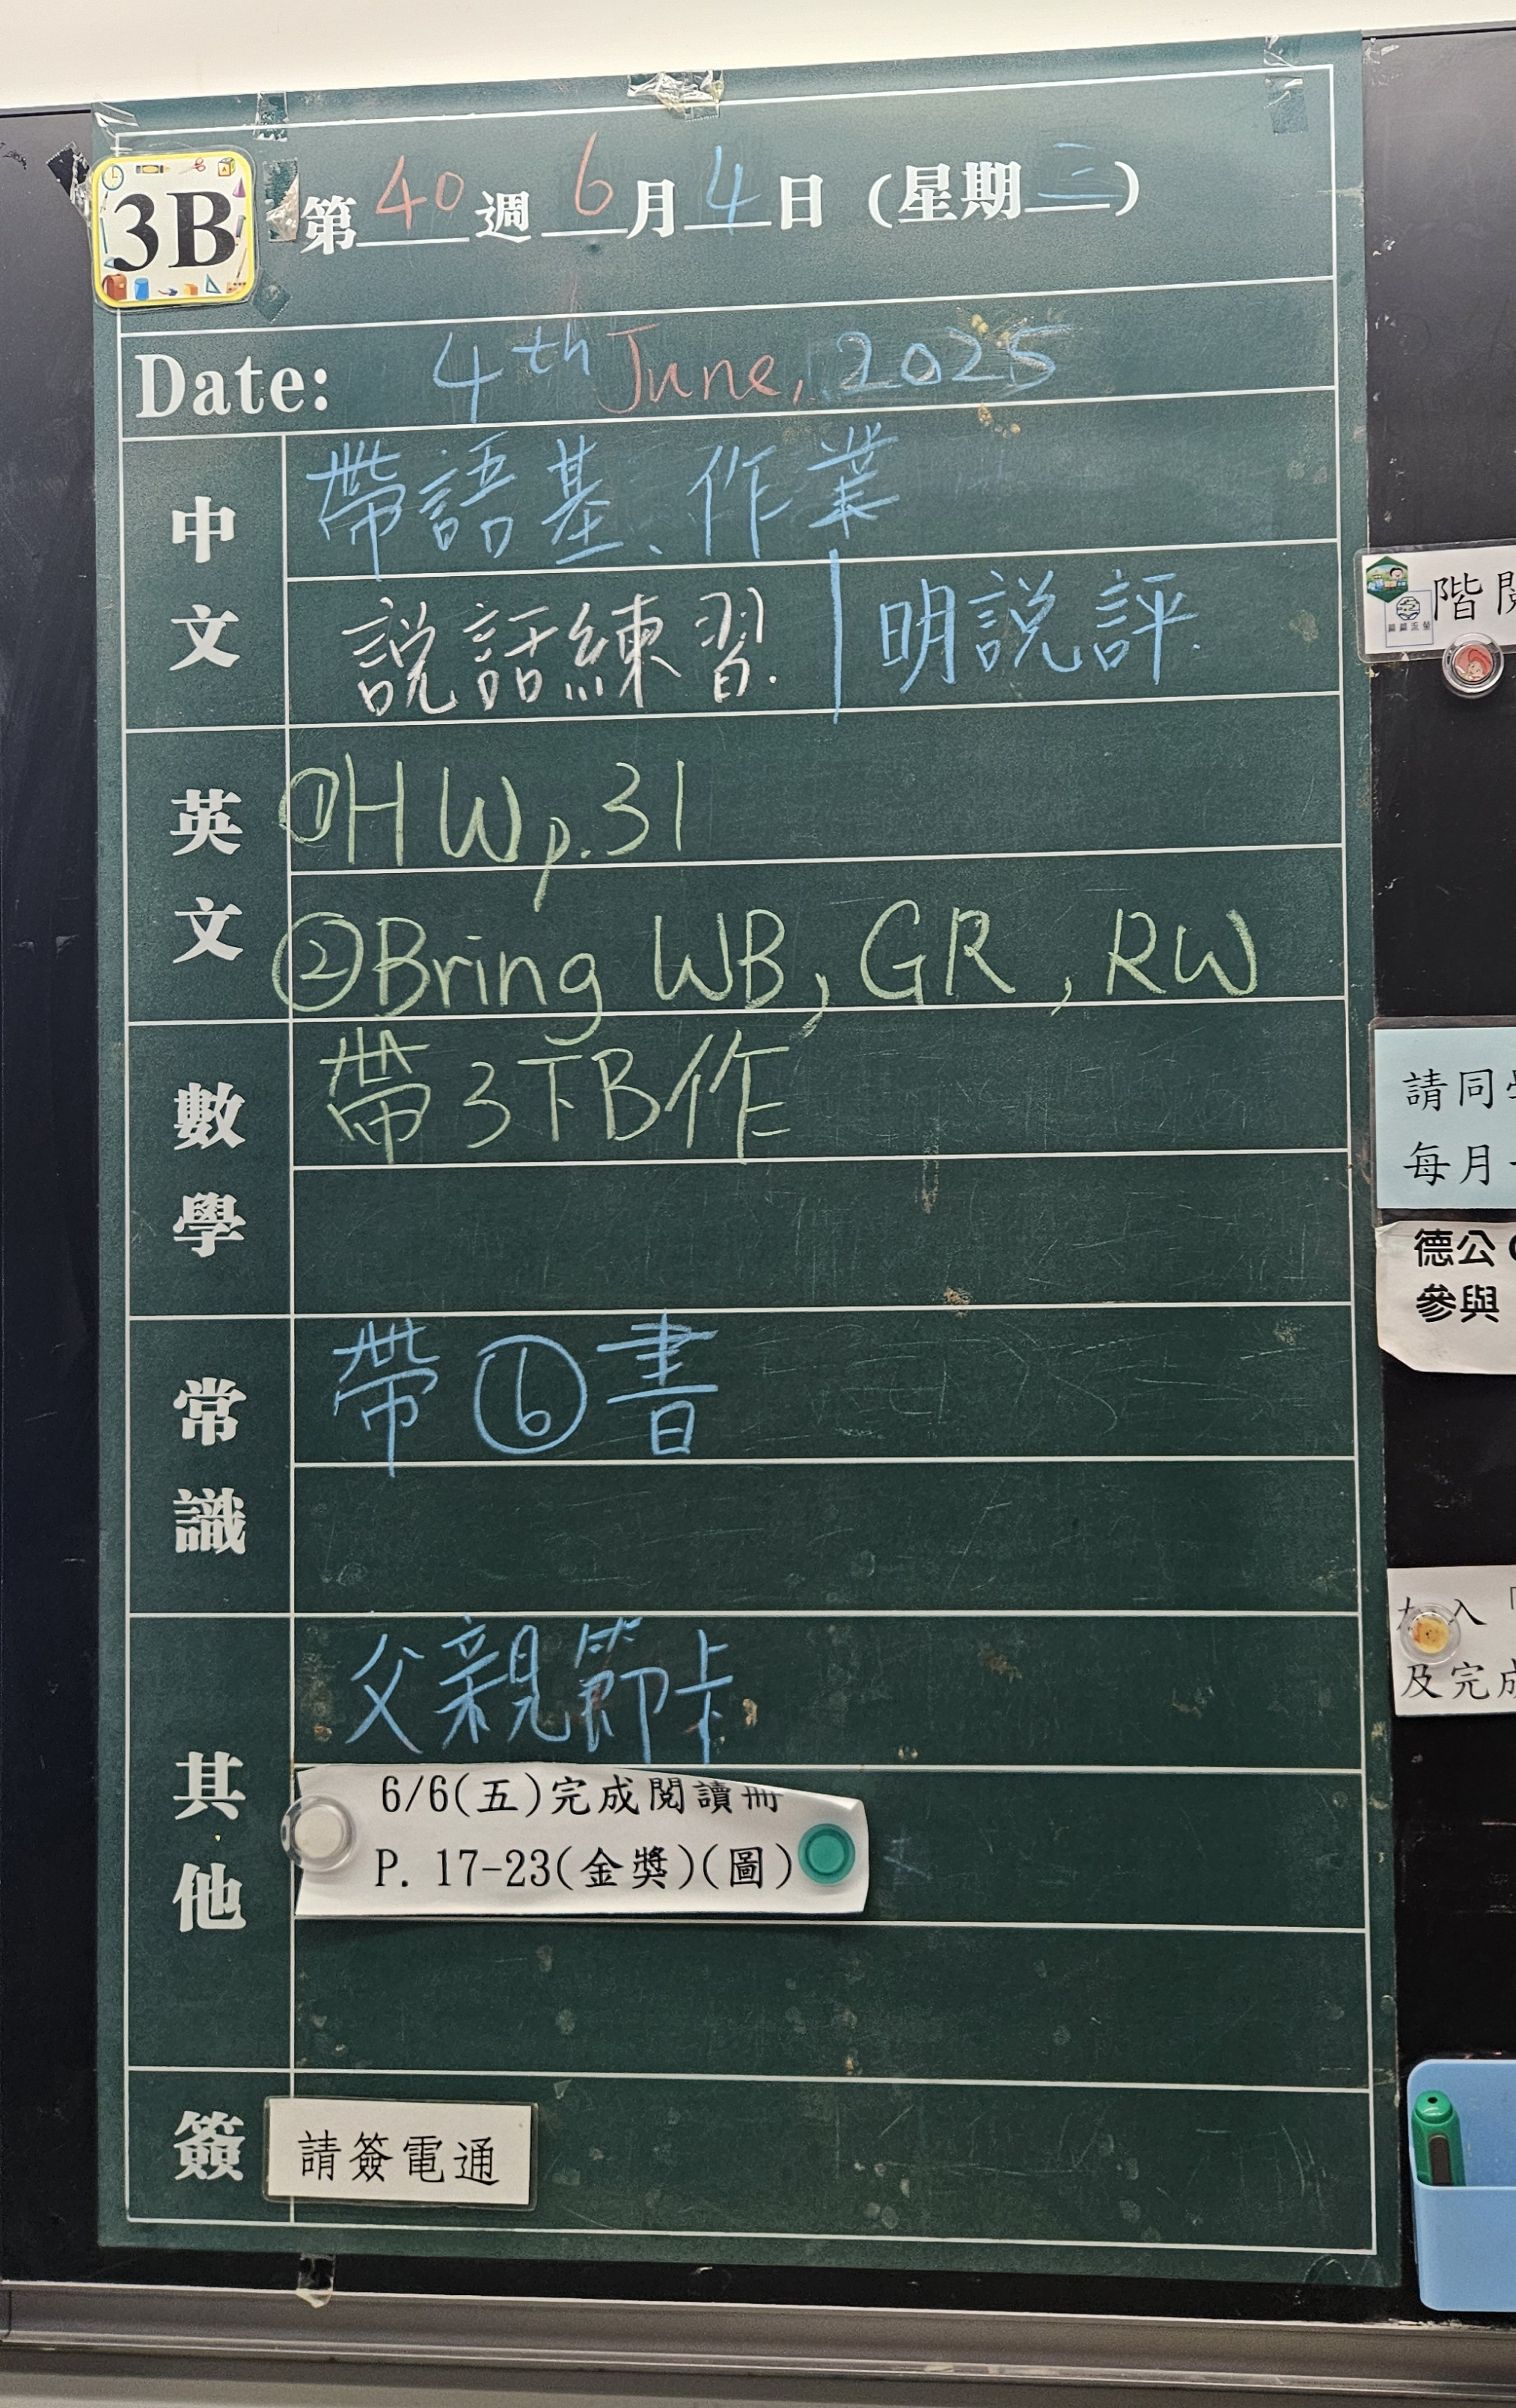 3B
第40週6月4日(星期三)
Date: 4th June, 2025
中文
帶語基、作業
説話練習. | 明説評.
英文
①HW p.31
②Bring WB, GR, RW
數學
帶3下B作
常識
帶⑥書
其他
父親節卡
6/6(五)完成閱讀冊
P. 17-23(金獎)(圖)
簽
請簽電通
階閱
請同學
每月
德公
參與
入「
及完成